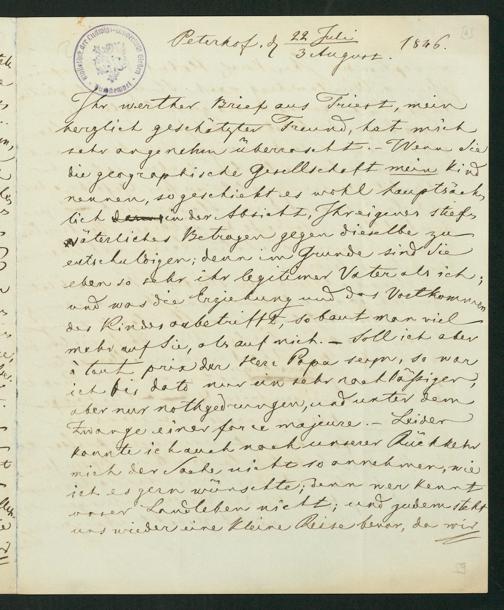 Peterhof, d 22 Juli / 3 August. 1846.
Ihr werther Brief aus Triest, mein
herzlich geschätzter Freund, hat mich
sehr angenehm überrascht. – Wenn Sie
die geographische Gesellschaft mein Kind
nennen, so geschieht es wohl hauptsäch-
lich in der Absicht, Ihr eigenes stief-
väterliches Betragen gegen dieselbe zu
entschuldigen; denn im Grunde sind Sie
eben so sehr ihr legitimer Vater als ich;
und was die Erziehung und das Vortkommen
des Kindes anbetrifft, so baut man viel
mehr auf Sie, als auf mich. – Soll ich aber
à tout prix der Herr Papa seyn, so war
ich bis dato nur ein sehr nachlässiger,
aber nur nothgedrungen, und unter dem
Zwange einer force majeure. – Leider
konnte ich auch nach unserer Rückkehr
mich der Sache nicht so annehmen, wie
ich es gern wünschte; denn wer kennt
unser Landleben nicht; und zudem steht
uns wieder eine kleine Reise bevor, da wir